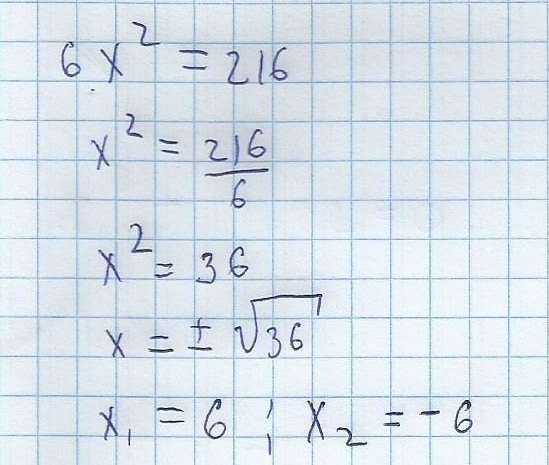 6x² = 216
x² = 216/6
x² = 36
x = ± √36
x₁ = 6 ; x₂ = -6